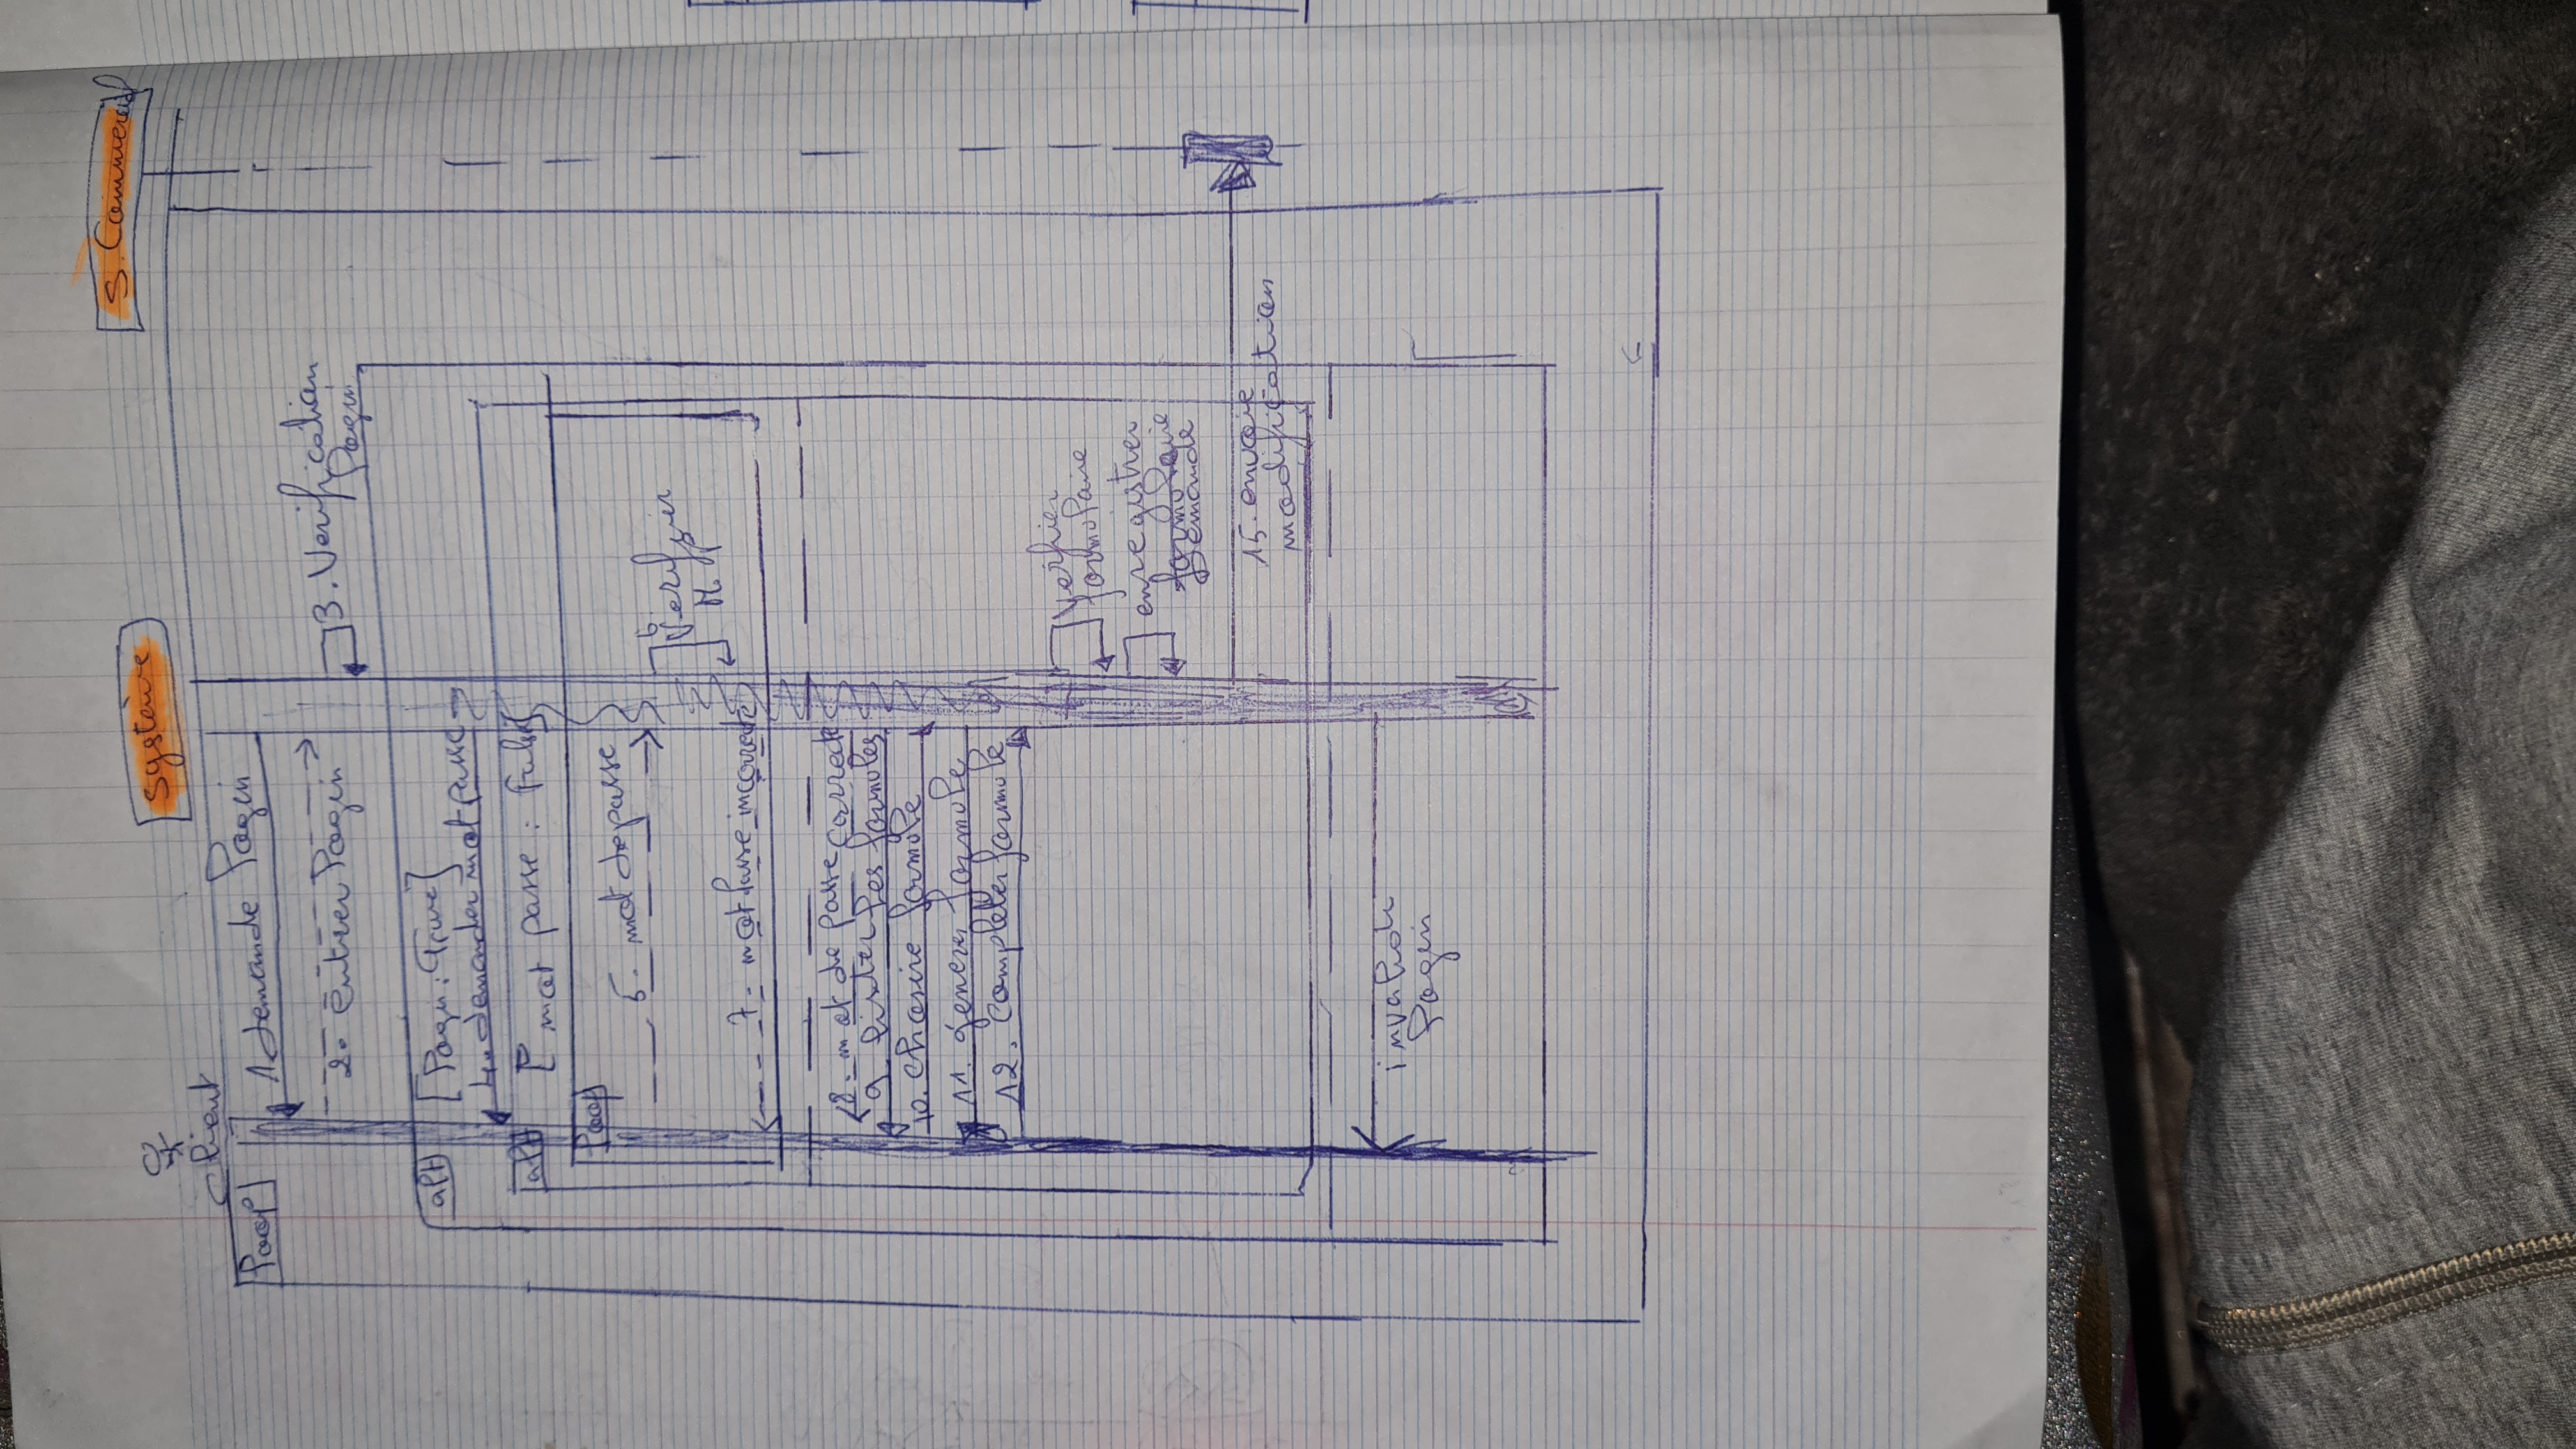 S. Commercial
Système
Client
loop
1. demande login
2. entrer login
3. Verification
login
alt
[login : True]
4. demander mot passe
alt
[mot passe : False]
loop
5. mot de passe
6
Verifier
M. P
7. mot passe incorrecte
8. mot de passe correcte
9. lister les formules
10. choisire formule
11. génerer formule
12. Completer formule
Verfier
formulaire
enregistrer
formulaire
Demande
15. envoie
modification
invalide
login